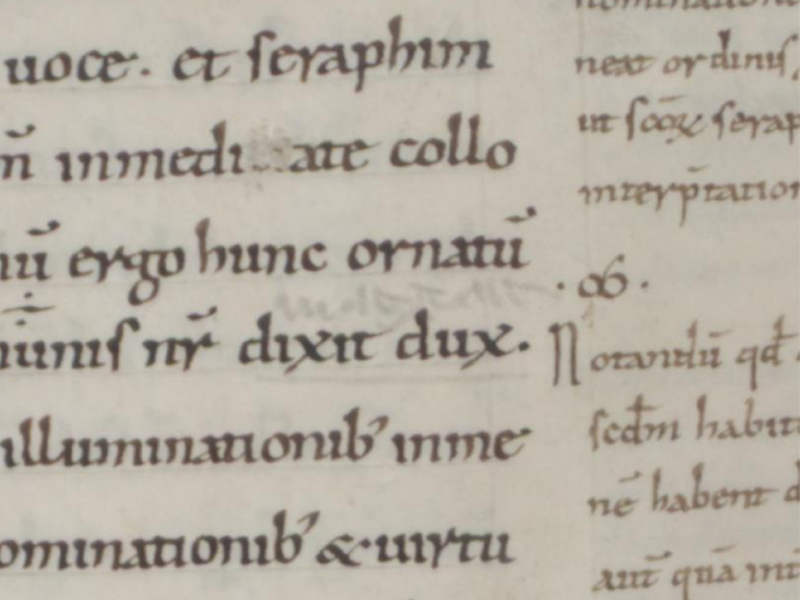 uoce. et seraphim
inmedi ate collo
ergo hunc ornatū
nr̄ dixit dux.
illuminationib' inme
ominationib' & uirtu
neat ordinis
ut scōꝝ serap
interp̄tation
· ob ·
Notandū qđ
scđm habit
nē habent d
aut̄ quā int